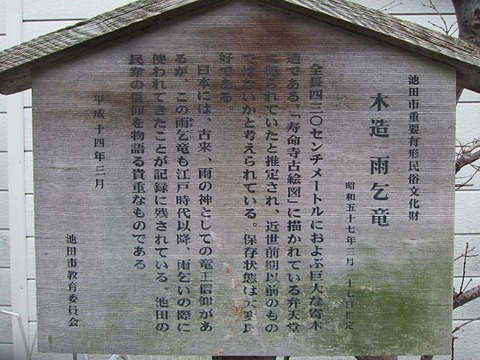 池田市重要有形民俗文化財
木造 雨乞竜
昭和五十七年三月二十七日指定
全長四三〇センチメートルにおよぶ巨大な寄木
造である。「寿命寺古絵図」に描かれている弁天堂
に蔵されていたと推定され、近世前期以前のもの
ではないかと考えられている。保存状態は大変良
好である。
日本には、古来、雨の神としての竜王信仰があ
るが、この雨乞竜も江戸時代以降、雨乞いの際に
使われてきたことが記録に残されている。池田の
民衆の信仰を物語る貴重なものである
平成十四年三月
池田市教育委員会